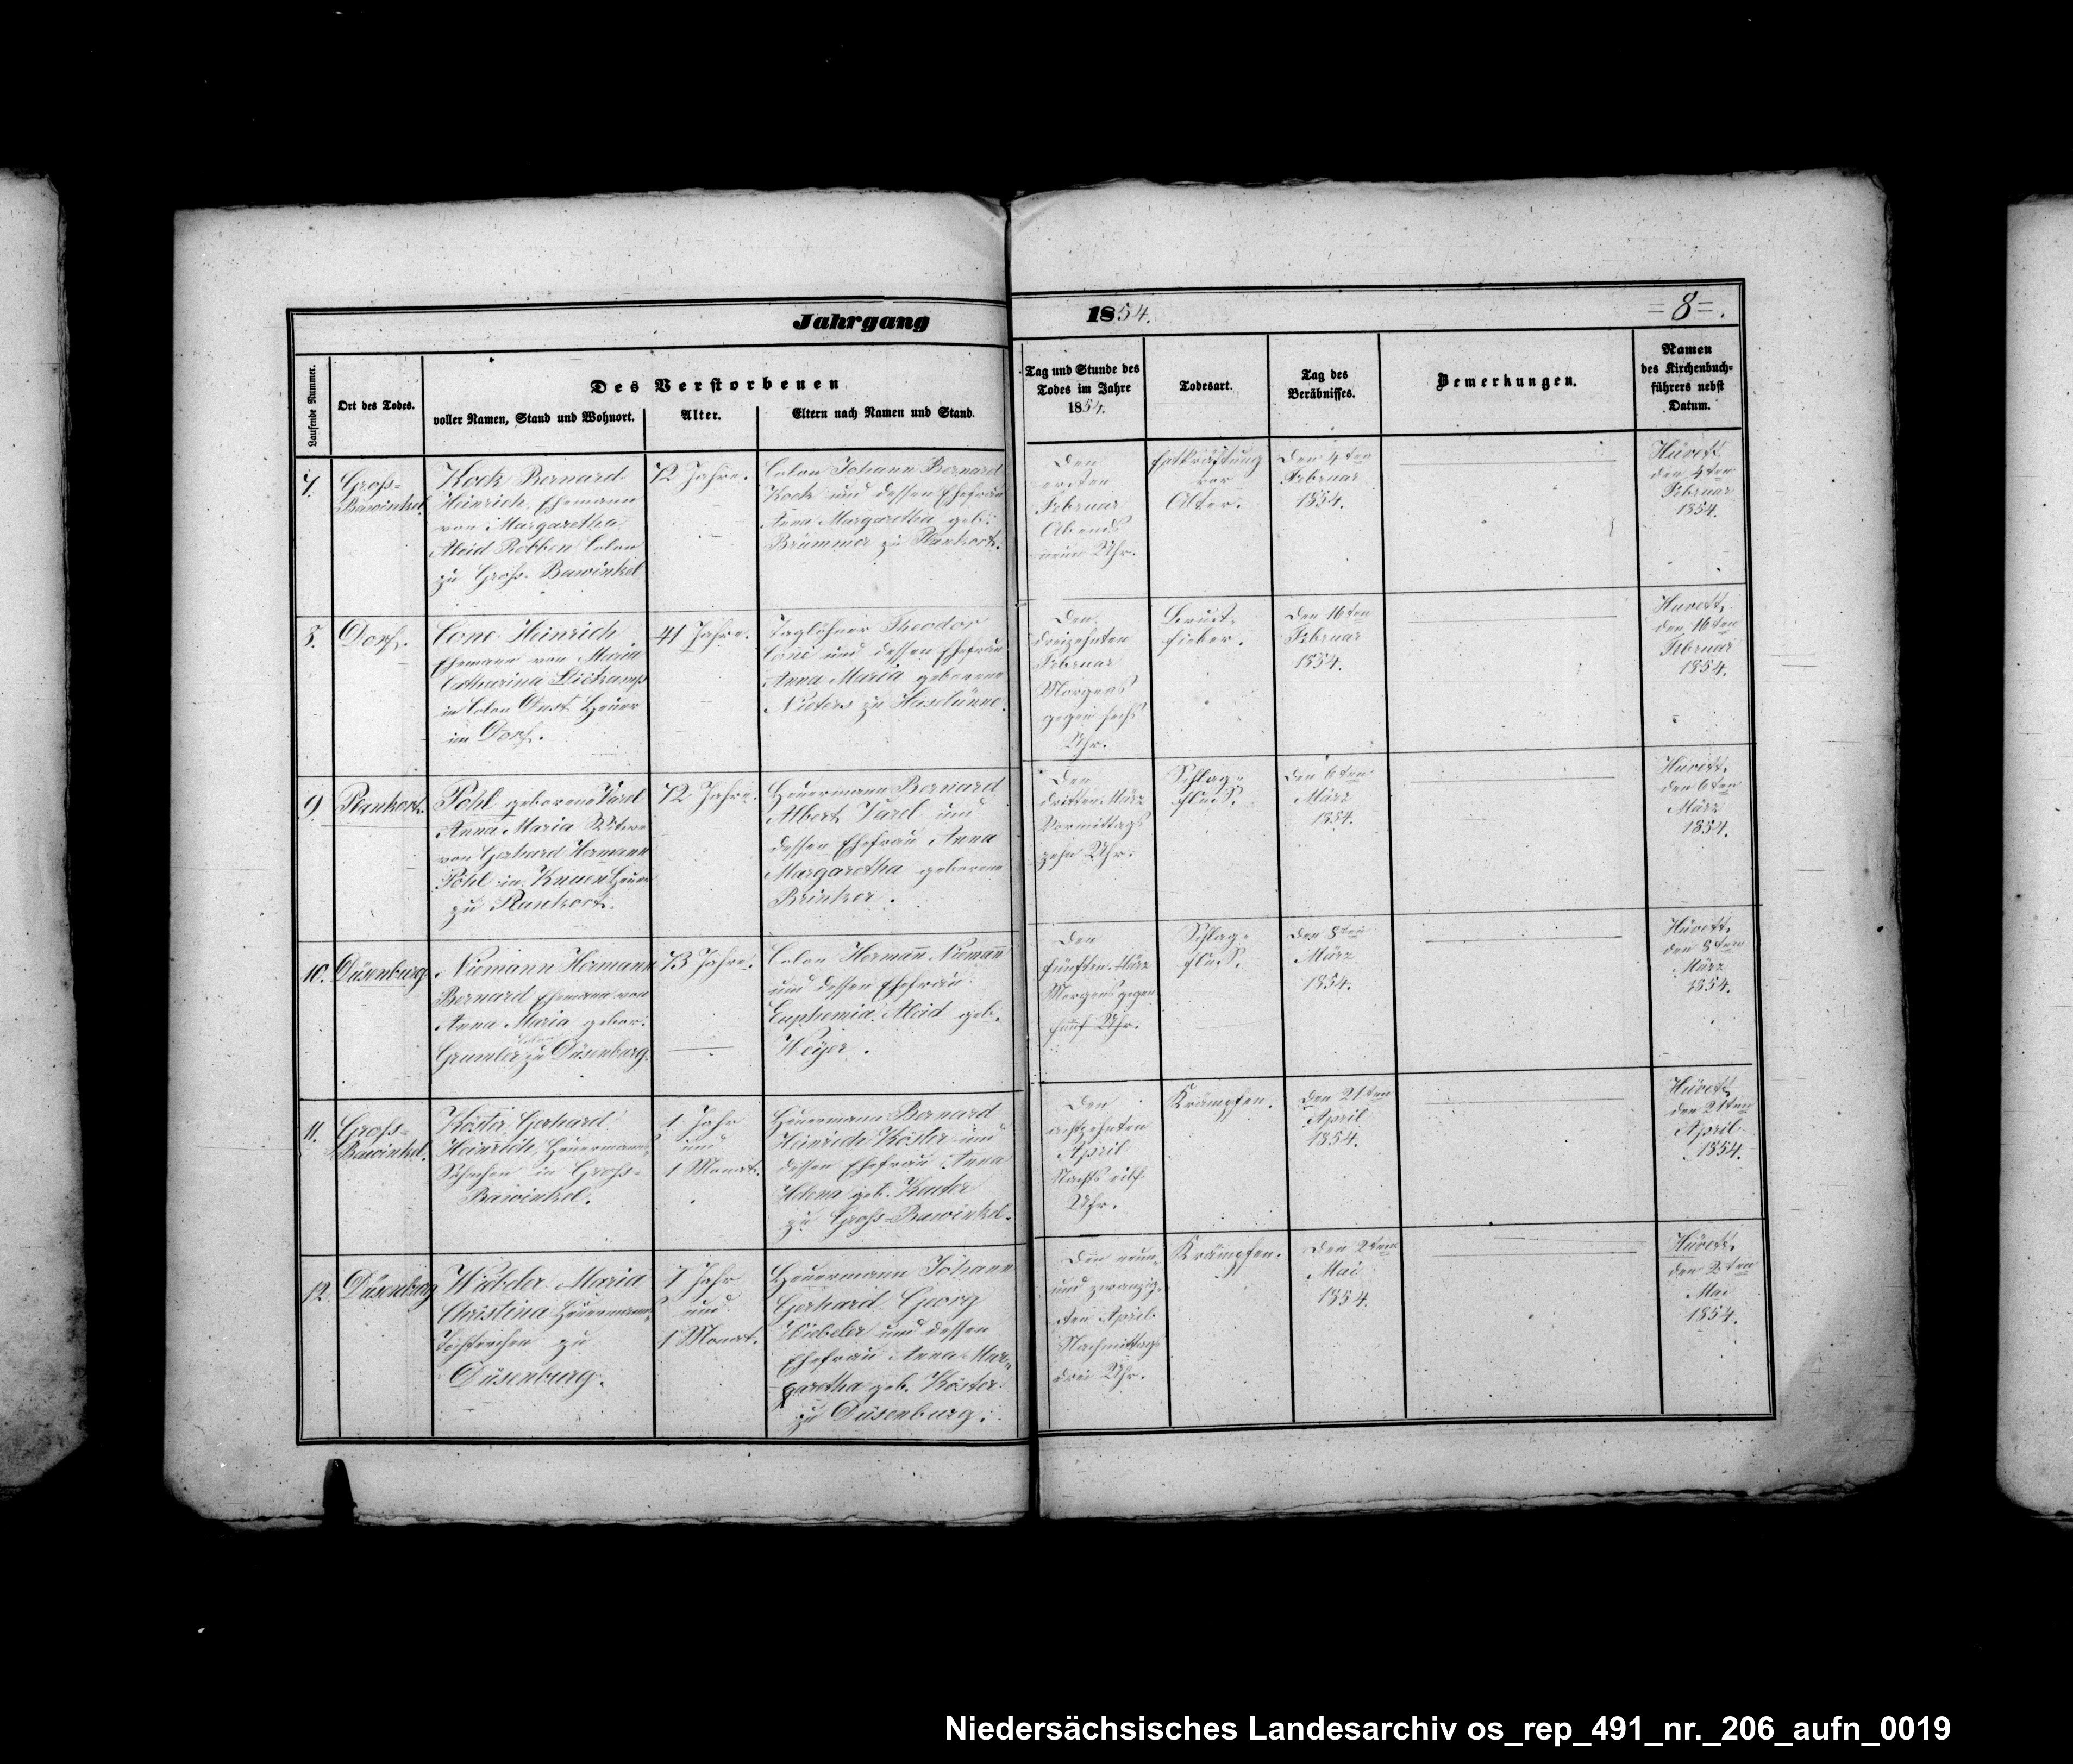 Jahrgang 1854. =8=.
Laufende Nummer.
Ort des Todes.
Des Verstorbenen
voller Namen, Stand und Wohnort.
Alter.
Eltern nach Namen und Stand.
Tag und Stunde des
Todes im Jahre
1854.
Todesart.
Tag des
Beräbnisses.
Bemerkungen.
Namen
des Kirchenbuch=
führers nebst
Datum.
7.
Groß=
Bawinkel.
Kock Bernard
Heinrich, Ehemann
von Margaretha
Aleid Robben Colon
zu Groß-Bawinkel
72 Jahre.
Colon Johann Bernard
Kock und dessen Ehefrau
Anna Margaretha geb:
Brümmer zu Plankort.
Den
ersten
Februar
Abends
neun Uhr.
Entkräftung
vor
Alter.
Den 4ten
Februar
1854.
Huvett,
den 4ten
Februar
1854.
8.
Dorf.
Cone Heinrich
Ehemann von Maria
Catharina
in Colon Heuer
im Dorf.
41 Jahre.
Taglöhner Theodor
Cone und dessen Ehefrau
Anna Maria geborene
Nieters zu Haselünne.
Den
dreizehnten
Februar
Morgens
gegen sechs
Uhr.
Brust-
fieber.
Den 16ten
Februar
1854.
Huvett,
den 16ten
Februar
1854.
9.
Plankort.
Pohl geborene Varel
Anna Maria Witwe
von Gerhard Hermann
Pohl in Knuen Heuer
zu Plankort.
72 Jahre.
Heuermann Bernard
Albert Varel und
dessen Ehefrau Anna
Margaretha geborene
Brinker.
Den
dritten März
Vormittags
zehn Uhr.
Schlag=
fluß.
Den 6ten
März
1854.
Huvett,
den 6ten
März
1854.
10.
Düsenburg.
Niemann Hermann
Bernard Ehemann von
Anna Maria gebor.
Grumler zu Düsenburg.
73 Jahre.
Colon Hermañ Niemañ
und dessen Ehefrau
Euphemia Aleid geb.
Weyer.
Den
fünften März
Morgens gegen
fünf Uhr.
Schlag=
fluß.
Den 8ten
März
1854.
Huvett,
den 8ten
März
1854.
11.
Groß=
Bawinkel.
Köster Gerhard
Heinrich, Heuermanns=
Söhnchen in Groß=
Bawinkel.
1 Jahr
und
1 Monat.
Heuermann Bernard
Heinrich Köster und
dessen Ehefrau Anna
Helena geb. Kanter
zu Groß-Bawinkel.
Den
achtzehnten
April
Nachts eilf
Uhr.
Krämpfen.
Den 21ten
April
1854.
Huvett,
den 21ten
April
1854.
12.
Düsenburg
Wübeler Maria
Christina Heuermanns=
Töchterchen zu
Düsenburg.
1 Jahr
und
1 Monat.
Heuermann Johann
Gerhard Georg
Wübeler und dessen
Ehefrau Anna Mar=
garetha geb. Köster
zu Düsenburg.
Den neun=
und zwanzig=
sten April
Nachmittags
drei Uhr.
Krämpfen.
Den 2ten
Mai
1854.
Huvett,
den 2ten
Mai
1854.
Niedersächsisches Landesarchiv os_rep_491_nr._206_aufn_0019